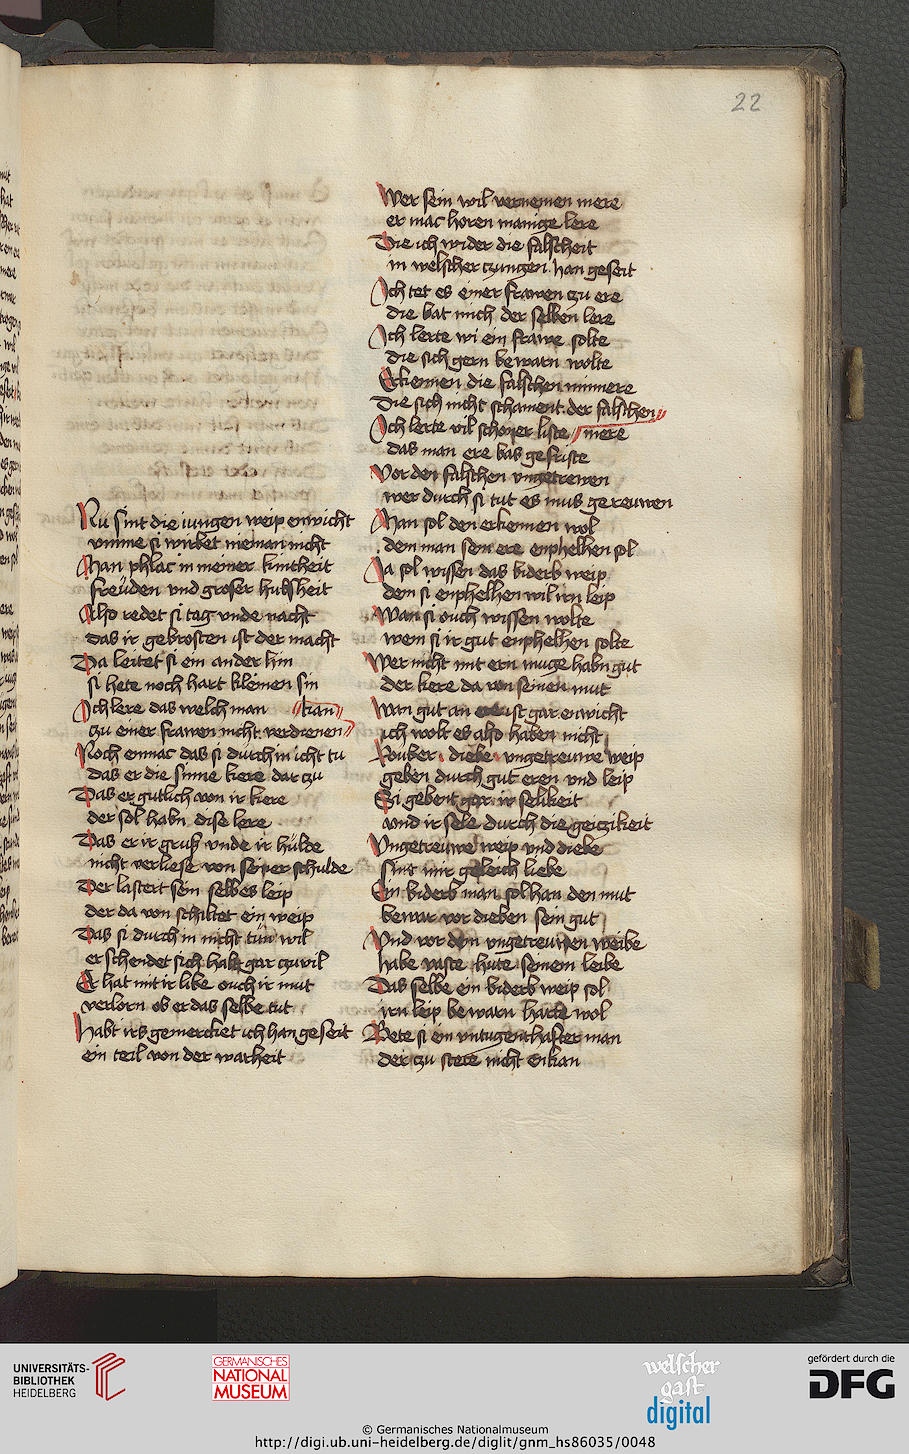 22
Nu sint die iungen weip enwicht
vmme si wirbet nieman nicht
Man phlac in meiner kintheit
freuden vnd groser hubsheit
Also redet si tag vnde nacht
das ir gebrosten ist der macht
Da leitet si ein ander hin
si hete noch hart kleinen sin
Ich lere das welch man kan
czu einer frawen nicht verdienen
Noch enmac das si durch in icht tu
das er die sinne kere dar czu
Das er gutlich von ir kere
der sol habn dise lere
Das er ir grus vnde ir hulde
nicht verliese von seiner schulde
Der lastert sein selbes leip
der da von schiltet ein weip
Das si durch in nicht tun wil
er schendet sich halt gar czu vil
Er hat mit ir like ouch ir mut
verlorn ob er das selbe tut
Habt irs gemercket ich han geseit
ein teil von der warheit
Wer sein wil vernemen mere
er mac horen manige lere
Die ich wider die falscheit
in welscher czungen han geseit
Ich tet es einer frawen czu ere
die bat mich der selben lere
Ich lerte wi ein frawe solte
die sich gern bewarn wolte
Erkennen die falschen minnere
Die sich nicht schament der falschen
Ich lerte vil schoner liste mere
das man ere bas gefriste
Vor den falschen vngetrewen
wer durch si tut es mus gerewen
Man sol den erkennen wol
dem man sein ere enphelhen sol
Ja sol wissen das biderb weip
dem si enphelhen wil irn leip
Wan si ouch wissen wolte
wem si ir gut enphelhen solte
Wer nicht mit ern muge habn gut
der kere da von seinen mut
Wan gut an ere ist gar enwicht
ich wolt es also haben nicht
Rouber diebe vngetreuwe weip
geben durch gut eren vnd leip
Si gebent gar ir selikeit
vnd ir sele durch die geiczikeit
Vngetreuwe weip vnd diebe
sint mir geleich liebe
Ein biderb man sol han den mut
bewar vor dieben sein gut
Vnd vor dem vngetreuwen weibe
habe vaste hute seinem leibe
Das selbe ein biderb weip sol
irn leip bewarn harte wol
Bete si ein vntugenthafter man
der czu stete nicht enkan
UNIVERSITÄTS-
BIBLIOTHEK
HEIDELBERG
GERMANISCHES
NATIONAL
MUSEUM
welscher
gast
digital
gefördert durch die
DFG
© Germanisches Nationalmuseum
http://digi.ub.uni-heidelberg.de/diglit/gnm_hs86035/0048